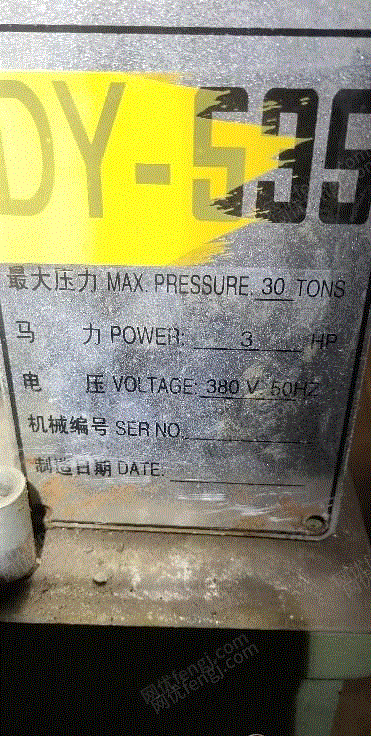 DY-595
最大压力 MAX. PRESSURE: 30 TONS
马 力 POWER: 3 HP
电 压 VOLTAGE: 380 V. 50HZ
机械编号 SER NO.
制造日期 DATE:
网优fengj.com
网优fengj.com